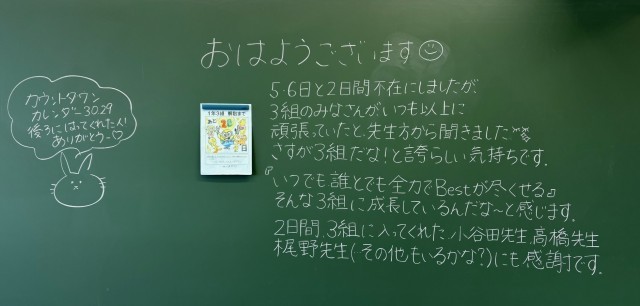 おはようございます☺
5・6日と2日間不在にしましたが
3組のみなさんがいつも以上に
頑張っていたと、先生方から聞きました
さすが3組だな!と誇らしい気持ちです.
『いつでも誰とでも全力でBestが尽くせる』
そんな3組に成長しているんだな〜と感じます.
2日間、3組に入ってくれた小谷田先生、高橋先生
梶野先生(その他もいるかな?)にも感謝です.
カウントダウン
カレンダー30.29
後ろにはってくれた人!
ありがとう〜♡
1年3組 解散まで
あと
28